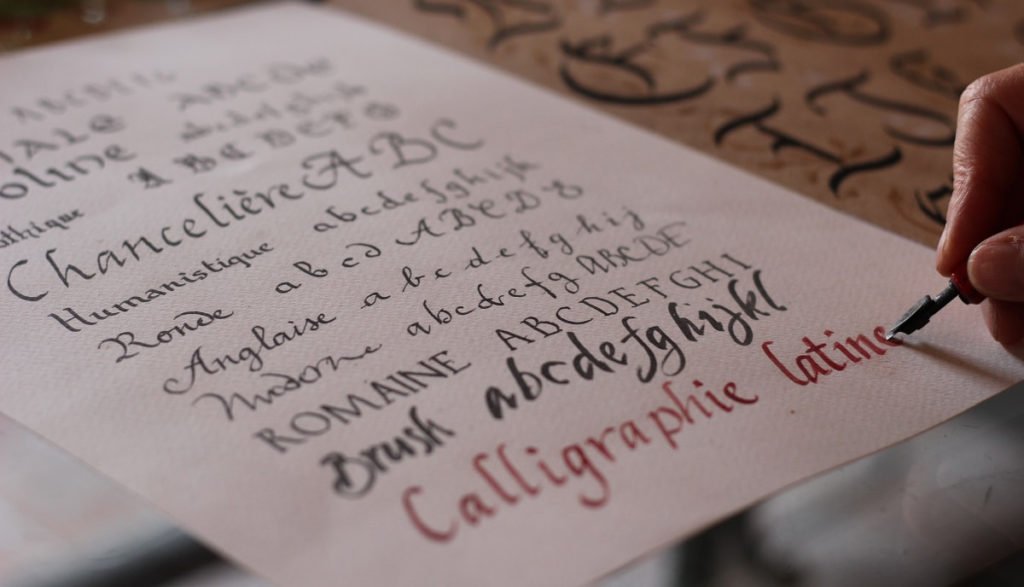 IALE ABCDE
oline
thique
Chancelière ABC
Humanistique abcdefghijk
Ronde a b c d A B C D
Anglaise a b c d e f g h i j
Moderne abcdefg ABCDE
ROMAINE ABCDEFGHI
Brush abcdefghijkl
Calligraphie latine